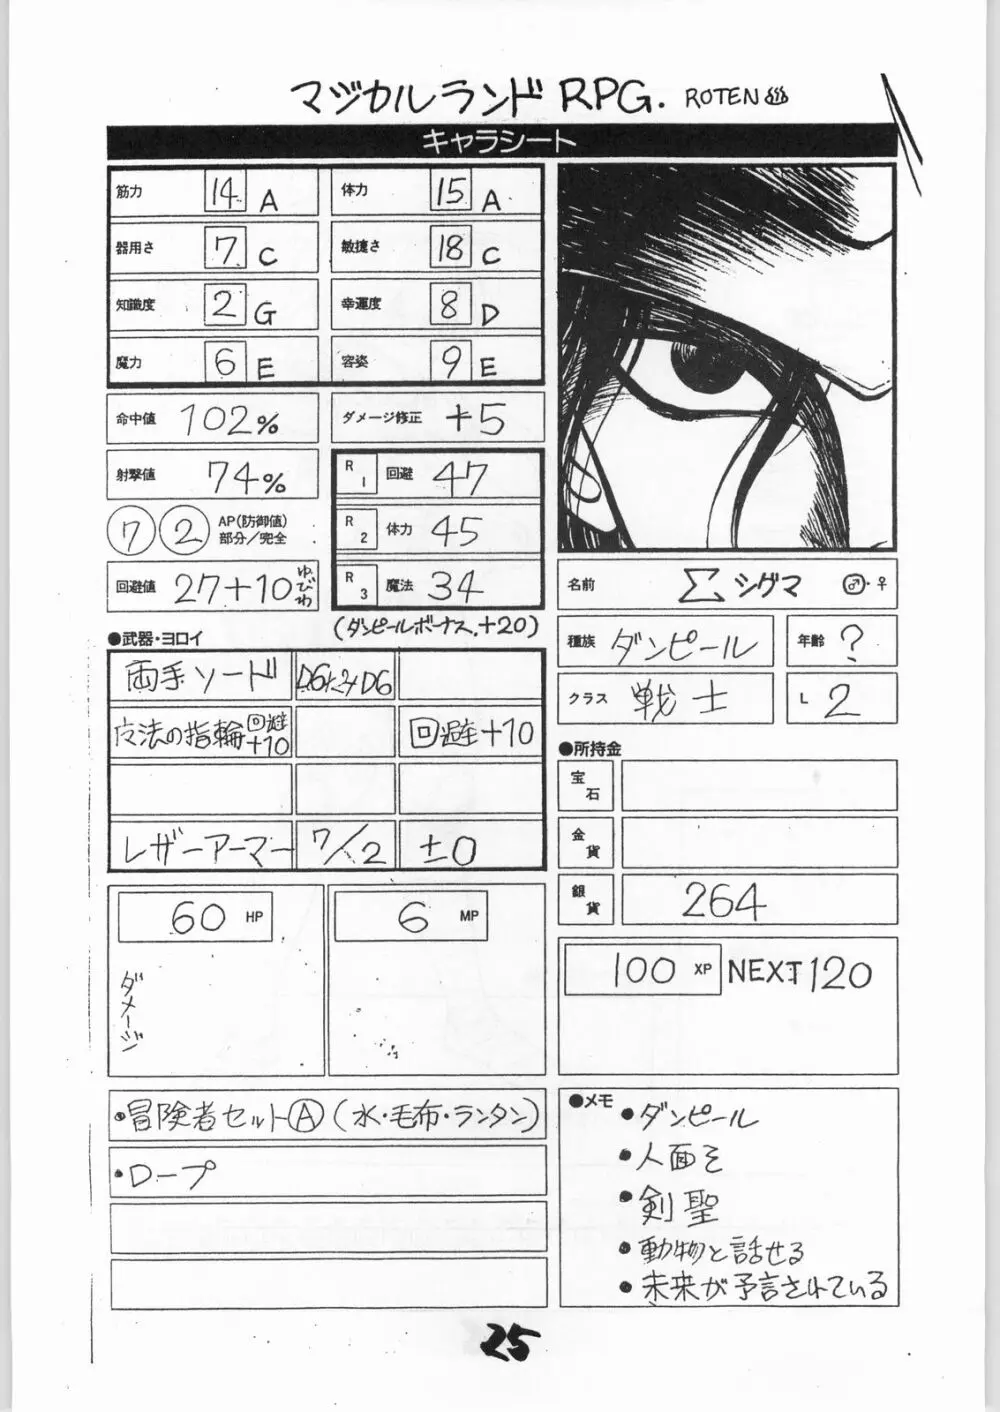 マジカルランド RPG. ROTEN♨
キャラシート
筋力 14 A 体力 15 A
器用さ 7 C 敏捷さ 18 C
知識度 2 G 幸運度 8 D
魔力 6 E 容姿 9 E
命中値 102% ダメージ修正 +5
射撃値 74% R1 回避 47
7 2 AP(防御値) 部分/完全 R2 体力 45
回避値 27+10 ゆびわ R3 魔法 34
(ダンピールボーナス.+20)
●武器・ヨロイ
両手ソード
の指輪 回避+10 回避+10
レザーアーマー 7/2 ±0
60 HP 6 MP
ダメージ
・冒険者セットⒶ(水・毛布・ランタン)
・ロープ
名前 Σ シグマ ♂・♀
種族 ダンピール 年齢 ?
クラス 戦士 L 2
●所持金
宝石
金貨
銀貨 264
100 XP NEXT 120
●メモ
●ダンピール
●人面そ
●剣聖
●動物と話せる
●未来が予言されている
25